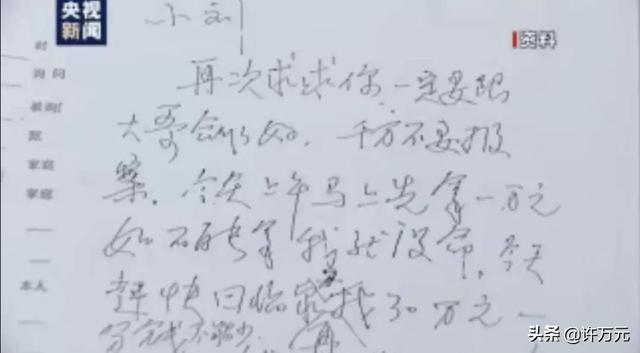 央视
新闻
小刘
资料
再次求求你，一定要跟
大哥合作好，千万不要报
案，今天上午马上先拿一万元
如不能拿我就没命，今天
赶快回临 找30万元
分钱不能少 再
时
询问
被询
家庭
家庭
本人
头条 @许万元